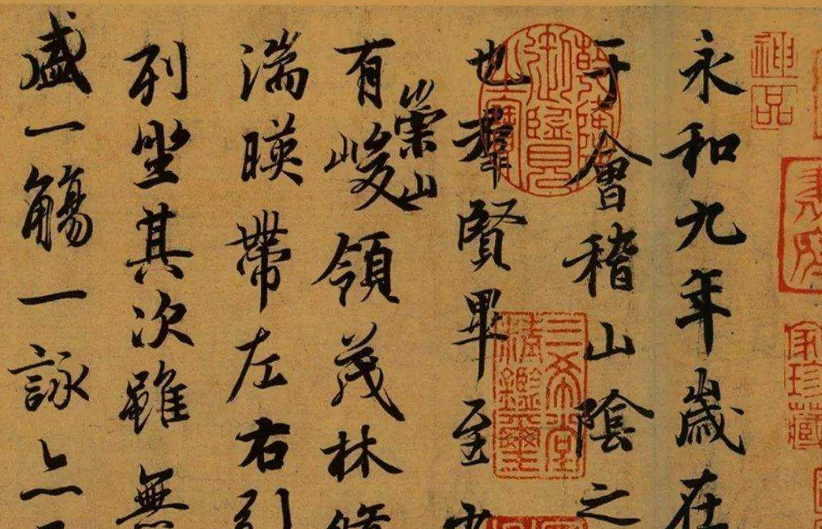 永和九年歲在
于會稽山陰之
也羣賢畢至
有崇山峻領茂林
湍暎帶左右引
列坐其次雖無
盛一觴一詠
神品
乾隆御覽之寶
三希堂精鑑璽
家珍藏